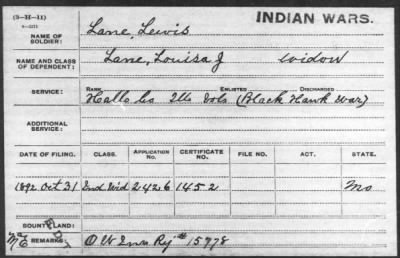 (3-H-11)
INDIAN WARS.
NAME OF SOLDIER: Lane, Lewis
NAME AND CLASS OF DEPENDENT: Lane, Louisa J Widow
SERVICE: RANK ENLISTED DISCHARGED
Halls Co Ills Vols (Black Hawk War)
ADDITIONAL SERVICE:
DATE OF FILING. CLASS. APPLICATION No. CERTIFICATE NO. FILE NO. ACT. STATE.
1892 Oct 31 Ind Wid 2426 1452 Mo
BOUNTY LAND:
REMARKS: O W Inv Rj # 15778